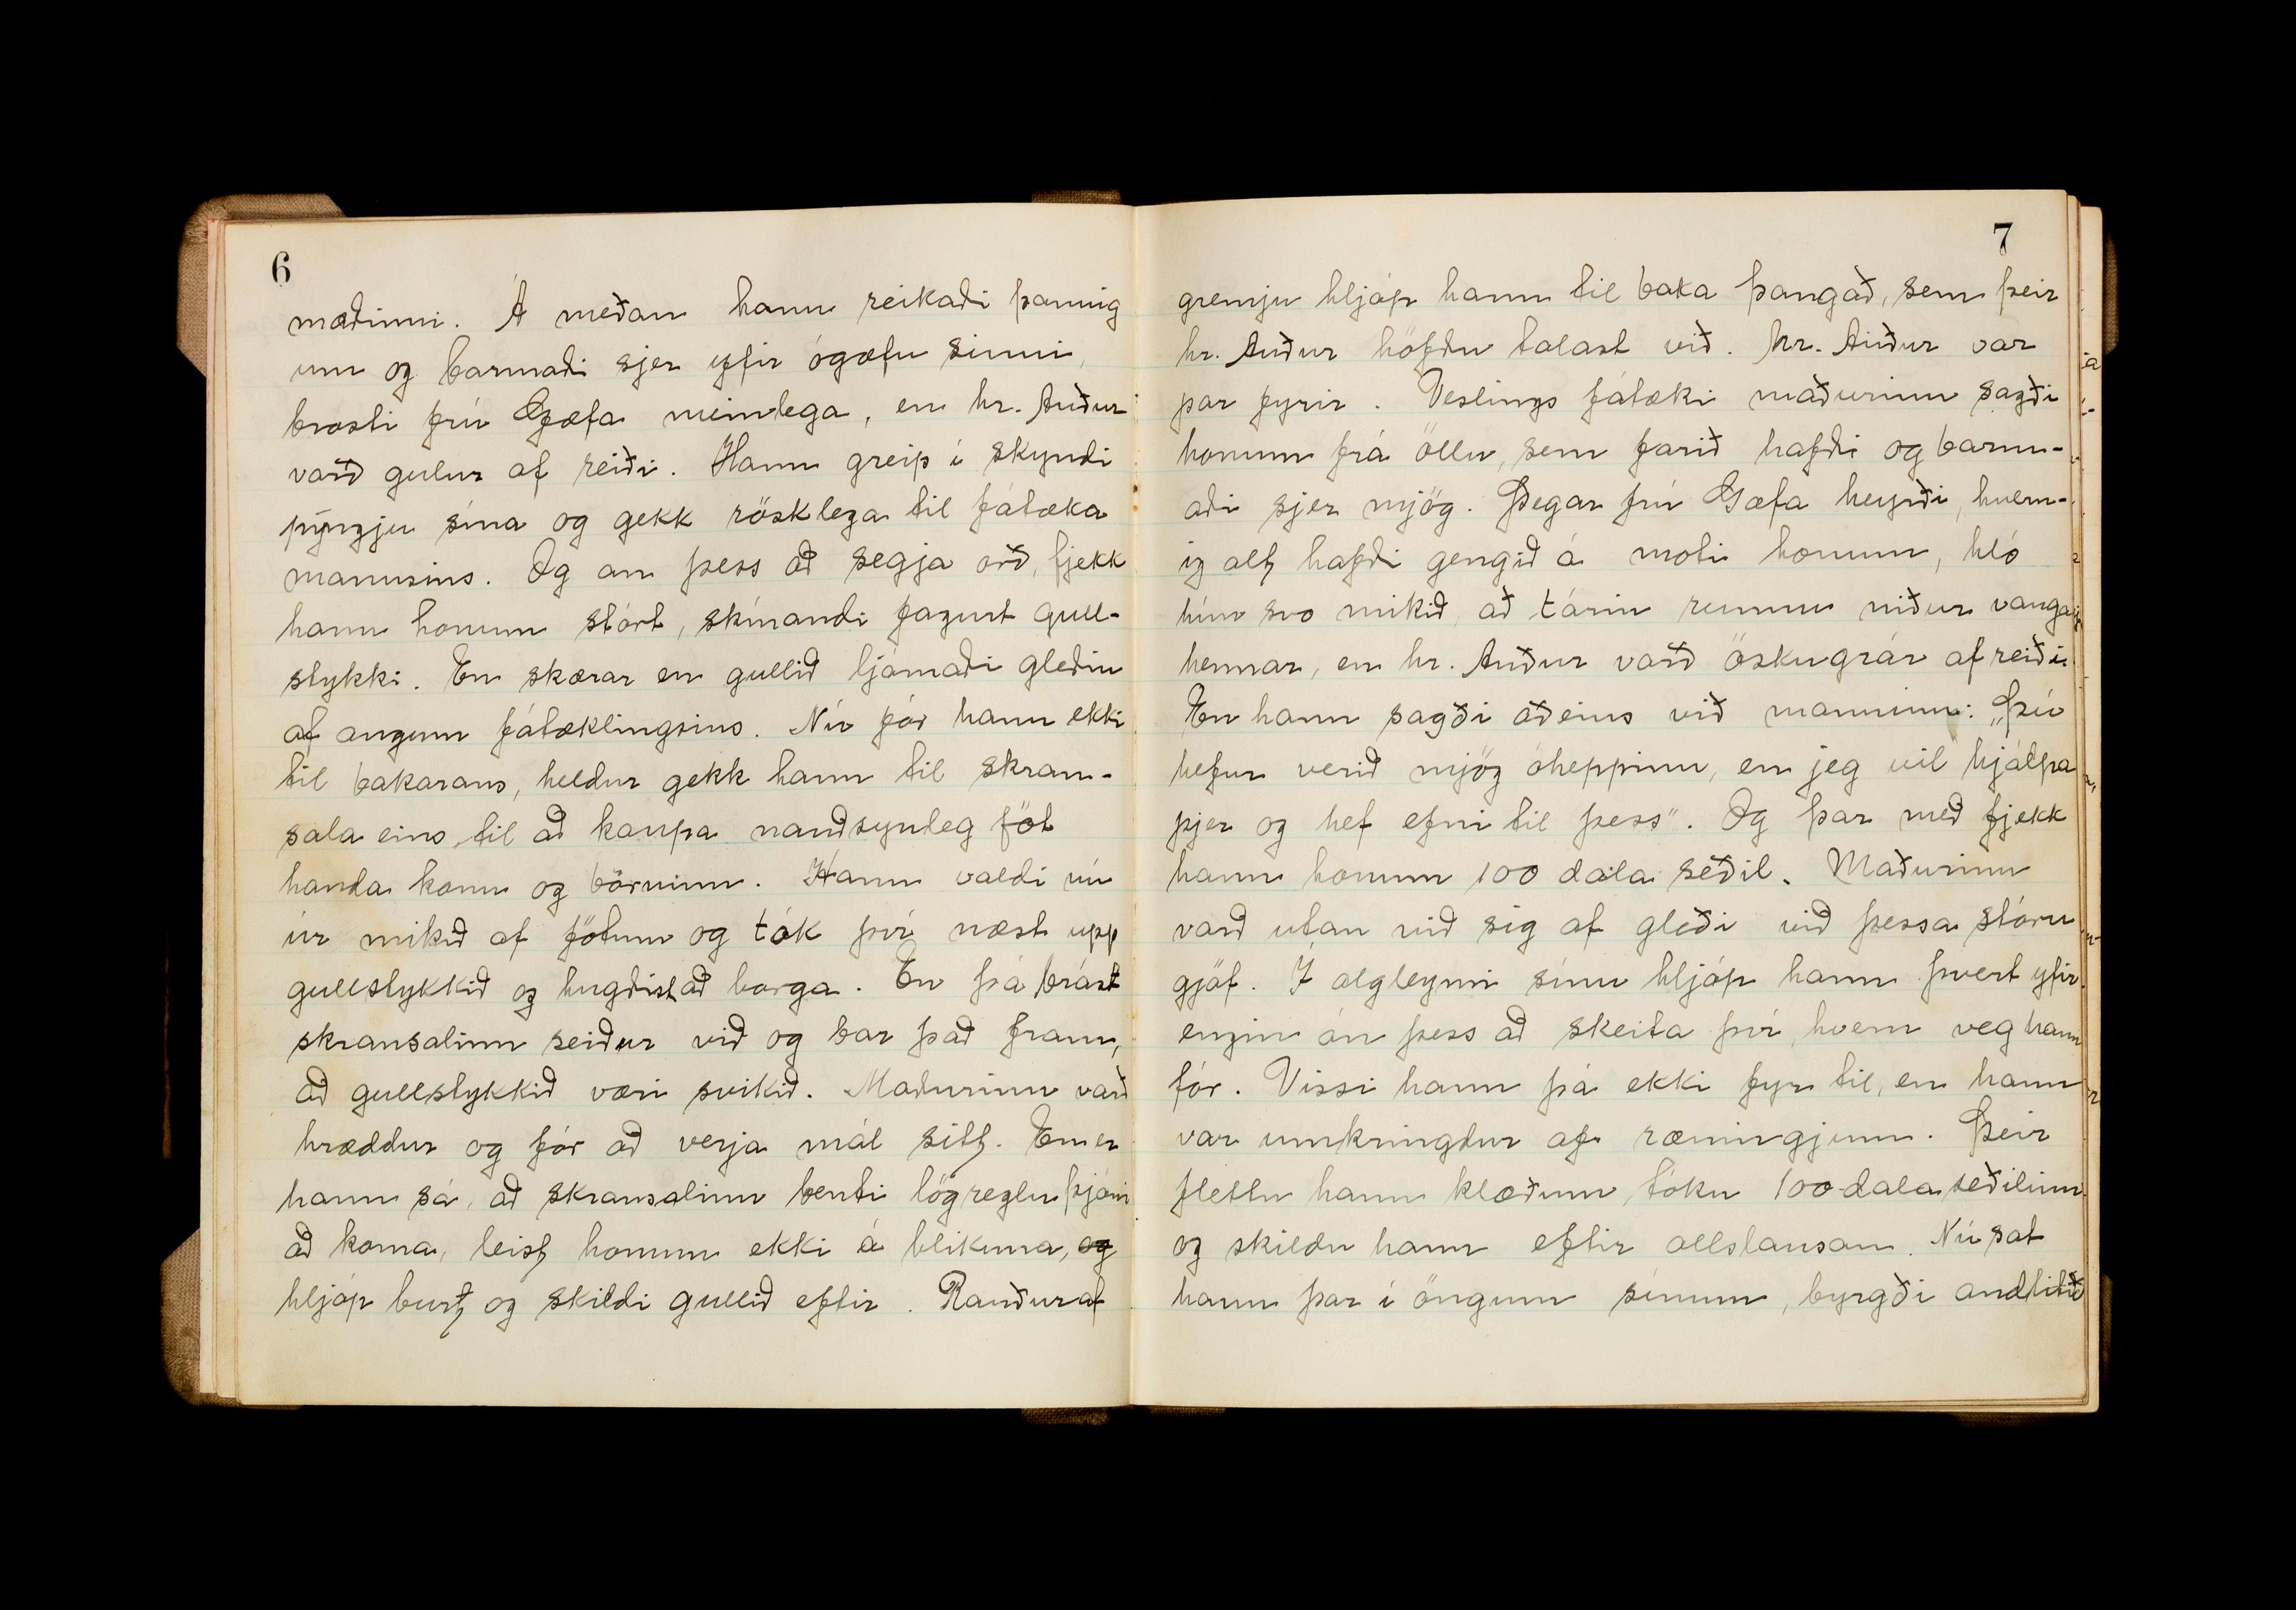 6
mæðinni. Á meðan hann reikaði þannig
um og barmaði sjer yfir ógæfu sinni,
brosti frú Gæfa meinlega, en hr. Auður
varð gulur af reiði. Hann greip í skyndi
pyngju sína og gekk rösklega til fátæka
mannsins. Og án þess að segja orð, fjekk
hann honum stórt, skínandi fagurt gull-
stykki. En skærar en gullið ljómaði gleðin
af augum fátæklingsins. Nú fór hann ekki
til bakarans, heldur gekk hann til skran-
sala eins, til að kaupa nauðsynleg föt
handa konu og börninn. Hann valdi nú
úr mikið af fötum og tók því næst upp
gullstykkið og hugðist að borga. En þá brást
skransalinn reiður við og bar það fram,
að gullstykkið væri svikið. Maðurinn varð
hræddur og fór að verja mál sitt. En er
hann sá, að skransalinn benti lögregluþjóni
að koma, leist honum ekki á blikuna, og
hljóp burt og skildi gullið eftir. Rauður af
7
gremju hljóp hann til baka þangað, sem þeir
hr. Auður höfðu talast við. Hr. Auður var
þar fyrir. Veslings fátæki maðurinn sagði
honum frá öllu, sem farið hafði og barm-
aði sjer mjög. Þegar frú Gæfa heyrði, hvern-
ig alt hafði gengið á móti honum, hló
hún svo mikið, að tárin runnu niður vanga
hennar, en hr. Auður varð öskugrár af reiði.
En hann sagði aðeins við manninn: „Þú
hefur verið mjög óheppinn, en jeg vil hjálpa
þjer og hef efni til þess". Og þar með fjekk
hann honum 100 dala seðil. Maðurinn
varð utan við sig af gleði við þessa stóru
gjöf. Í algleymi sínu hljóp hann þvert yfir
engin án þess að skeita því, hvern veg hann
fór. Vissi hann þá ekki fyr til, en hann
var umkringdur af ræningjum. Þeir
flettu hann klæðum, tóku 100 dala seðilinn
og skildu hann eftir allslausan. Nú sat
hann þar í öngum sínum, byrgði andlitið